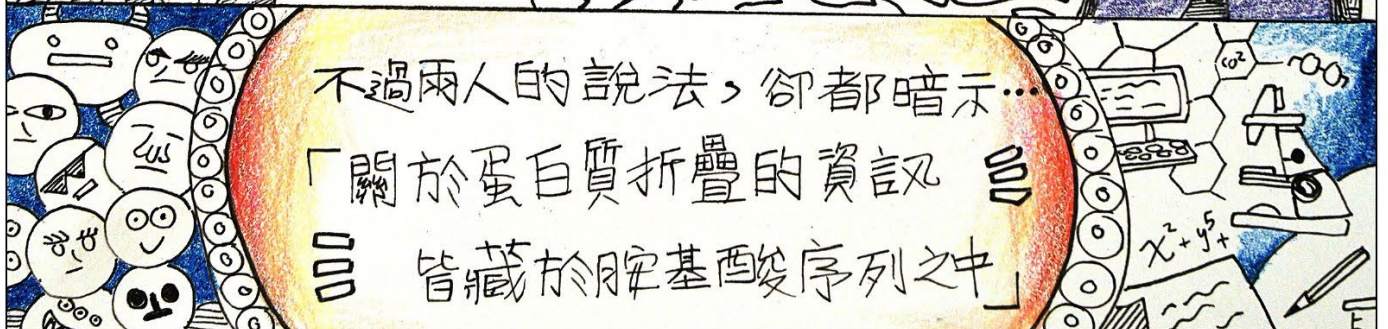 不過兩人的說法，卻都暗示…
「關於蛋白質折疊的資訊
皆藏於胺基酸序列之中」
CO²
x²+y⁵+